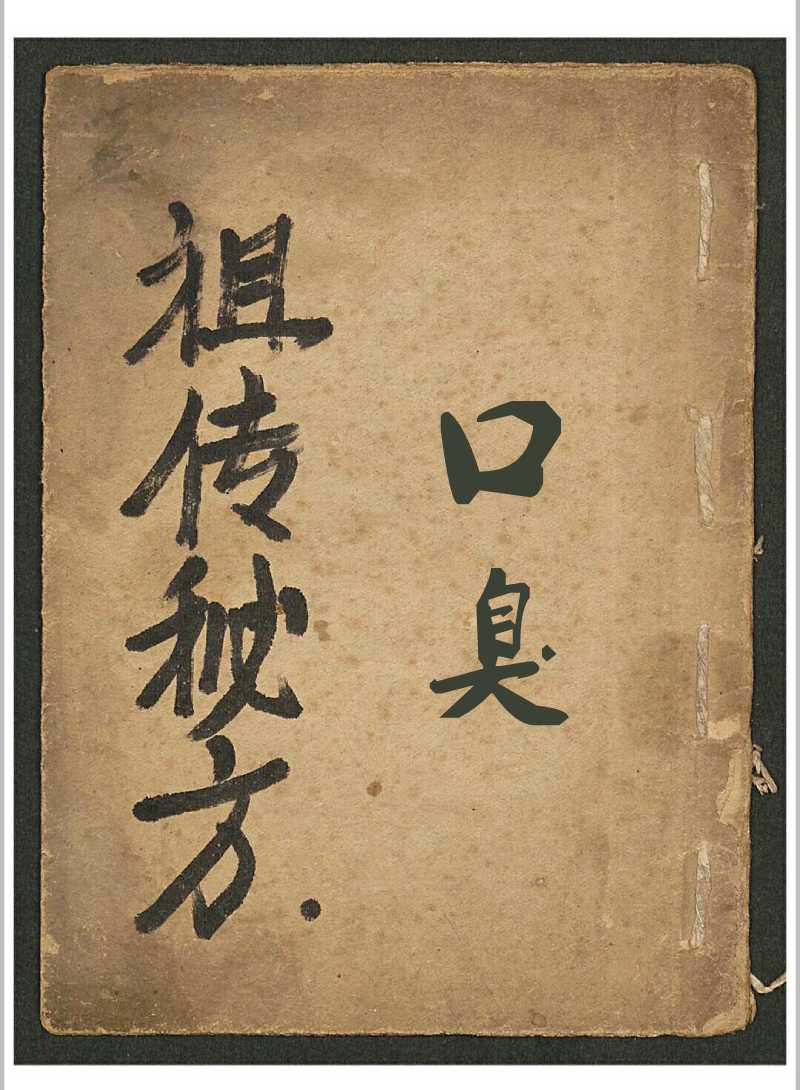 口臭
祖传秘方.